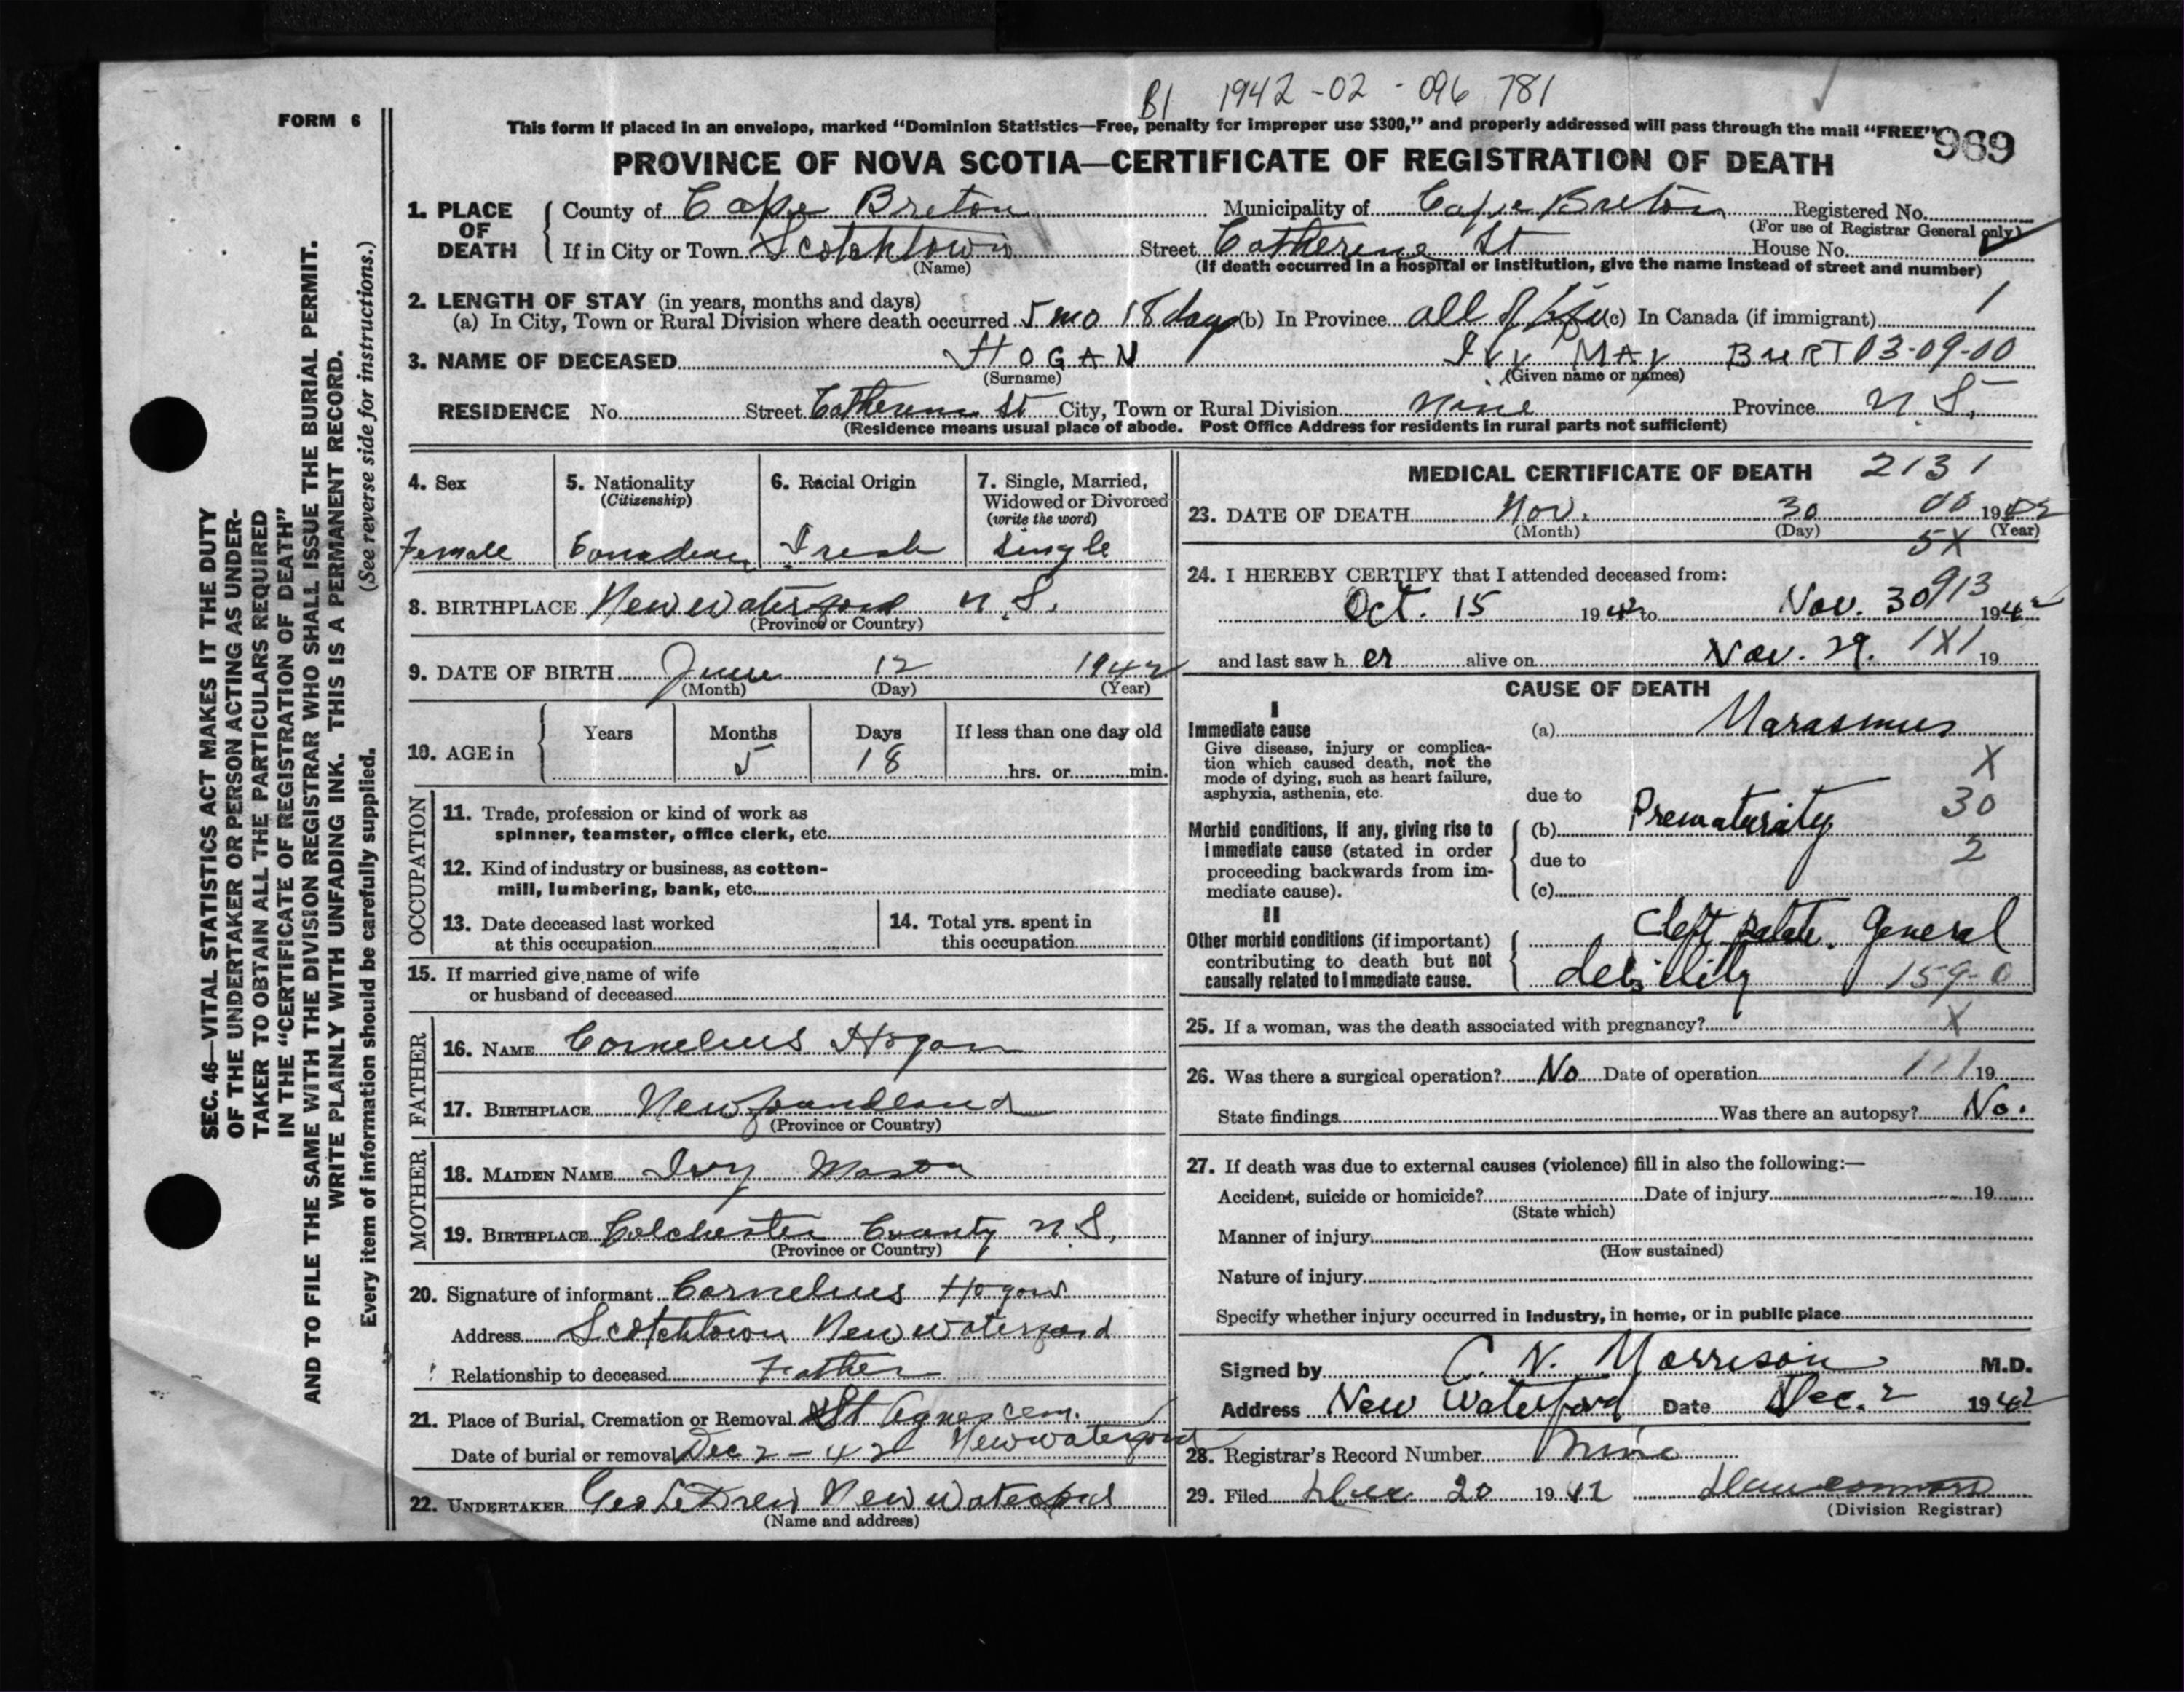 B1 1942-02-096 781
FORM 6
This form if placed in an envelope, marked “Dominion Statistics—Free, penalty for improper use $300,” and properly addressed will pass through the mail “FREE”
969
PROVINCE OF NOVA SCOTIA—CERTIFICATE OF REGISTRATION OF DEATH
1. PLACE OF DEATH
County of Cape Breton Municipality of Cape Breton Registered No.
(For use of Registrar General only)
If in City or Town Scotchtown Street Catherine St House No.
(Name)
(If death occurred in a hospital or institution, give the name instead of street and number)
2. LENGTH OF STAY (in years, months and days)
(a) In City, Town or Rural Division where death occurred 5 mo 18 days (b) In Province all of Life (c) In Canada (if immigrant) 1
3. NAME OF DECEASED HOGAN Ivy MAY BURT 03-09-00
(Surname) (Given name or names)
RESIDENCE No. Street Catherine St City, Town or Rural Division Province N.S.
(Residence means usual place of abode. Post Office Address for residents in rural parts not sufficient)
4. Sex
Female
5. Nationality
(Citizenship)
Canadian
6. Racial Origin
Irish
7. Single, Married,
Widowed or Divorced
(write the word)
Single
8. BIRTHPLACE New Waterford N.S.
(Province or Country)
9. DATE OF BIRTH June 12 1942
(Month) (Day) (Year)
10. AGE in
Years Months Days If less than one day old
5 18 hrs. or min.
OCCUPATION
11. Trade, profession or kind of work as
spinner, teamster, office clerk, etc.
12. Kind of industry or business, as cotton-
mill, lumbering, bank, etc.
13. Date deceased last worked
at this occupation
14. Total yrs. spent in
this occupation
15. If married give name of wife
or husband of deceased
FATHER
16. NAME Cornelius Hogan
17. BIRTHPLACE Newfoundland
(Province or Country)
MOTHER
18. MAIDEN NAME Ivy Mason
19. BIRTHPLACE Colchester County N.S.
(Province or Country)
20. Signature of informant Cornelius Hogan
Address Scotchtown New Waterford
Relationship to deceased Father
21. Place of Burial, Cremation or Removal St Agnes cem.
Date of burial or removal Dec 2-42 New Waterford
22. UNDERTAKER Geo LeDrew New Waterford
(Name and address)
MEDICAL CERTIFICATE OF DEATH 2131
23. DATE OF DEATH Nov. 30 00 1942
(Month) (Day) (Year)
5X
24. I HEREBY CERTIFY that I attended deceased from:
913
Oct. 15 1942 to Nov. 30 1942
and last saw her alive on Nov. 29. 1X1 19
CAUSE OF DEATH
I
Immediate cause
Give disease, injury or complica-
tion which caused death, not the
mode of dying, such as heart failure,
asphyxia, asthenia, etc.
(a) Marasmus
X
due to
30
Morbid conditions, if any, giving rise to
immediate cause (stated in order
proceeding backwards from im-
mediate cause).
(b) Prematurity
due to 2
(c)
II
Other morbid conditions (if important)
contributing to death but not
causally related to immediate cause.
Cleft palate. General
debility 159-0
25. If a woman, was the death associated with pregnancy? X
26. Was there a surgical operation? No Date of operation 111 19
State findings Was there an autopsy? No.
27. If death was due to external causes (violence) fill in also the following:—
Accident, suicide or homicide? Date of injury 19
(State which)
Manner of injury
(How sustained)
Nature of injury
Specify whether injury occurred in industry, in home, or in public place
Signed by C. N. Morrison M.D.
Address New Waterford Date Dec. 2 1942
28. Registrar's Record Number
29. Filed Dec 20 1942
(Division Registrar)
SEC. 46—VITAL STATISTICS ACT MAKES IT THE DUTY
OF THE UNDERTAKER OR PERSON ACTING AS UNDER-
TAKER TO OBTAIN ALL THE PARTICULARS REQUIRED
IN THE “CERTIFICATE OF REGISTRATION OF DEATH”
AND TO FILE THE SAME WITH THE DIVISION REGISTRAR WHO SHALL ISSUE THE BURIAL PERMIT.
WRITE PLAINLY WITH UNFADING INK. THIS IS A PERMANENT RECORD.
Every item of information should be carefully supplied. (See reverse side for instructions.)